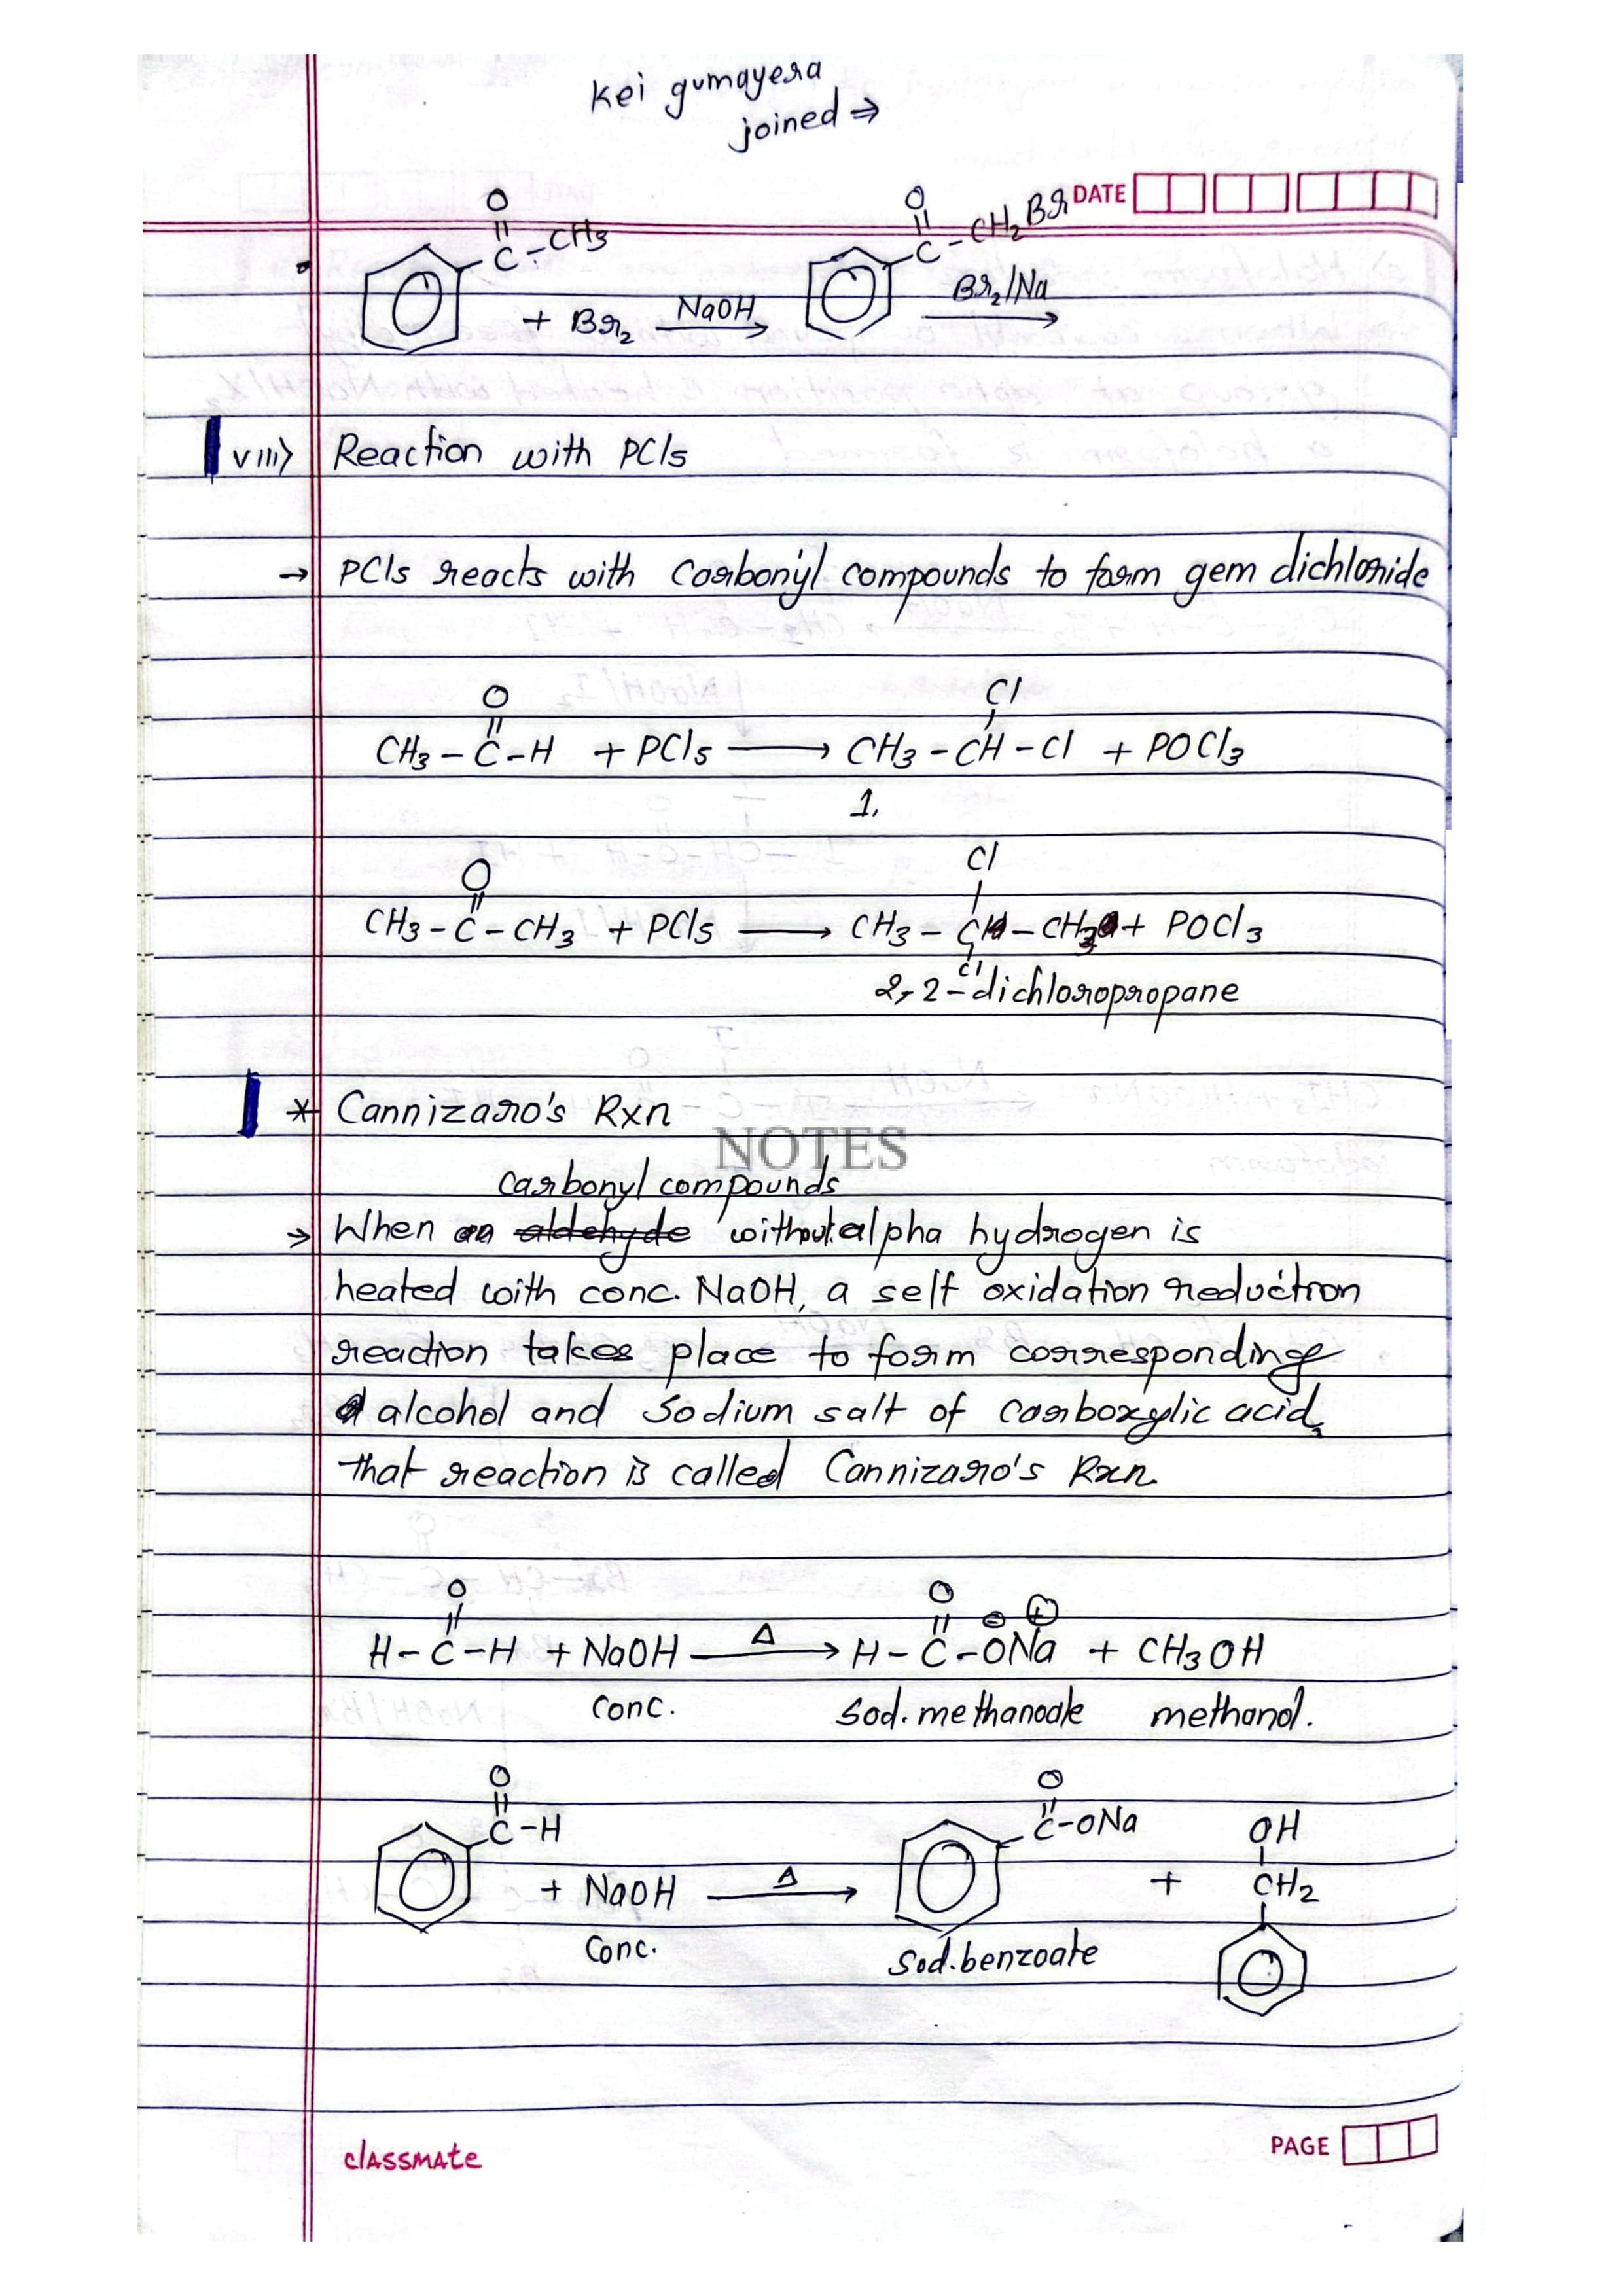 kei gumayera
joined ⇒
DATE
O
||
C-CH3 + Br2 NaOH→ O
||
C-CH2Br Br2/Na→
viii> Reaction with PCl5
→ PCl5 reacts with carbonyl compounds to form gem dichloride
O
||
CH3-C-H + PCl5 ⟶ CH3-CH-Cl + POCl3
Cl
1,
O
||
CH3-C-CH3 + PCl5 ⟶ CH3-C-CH3 + POCl3
Cl
Cl
2,2-dichloropropane
* Cannizaro's Rxn
NOTES
carbonyl compounds
→ When an aldehyde without alpha hydrogen is
heated with conc. NaOH, a self oxidation reduction
reaction takes place to form corresponding
alcohol and sodium salt of carboxylic acid,
that reaction is called Cannizaro's Rxn.
O
||
H-C-H + NaOH Δ⟶ H-C-ONa + CH3OH
O
||
⊖ ⊕
conc. Sod. methanoate methanol.
O
||
C-H + NaOH Δ⟶ O
||
C-ONa + OH
CH2
conc. Sod. benzoate
classmate
PAGE